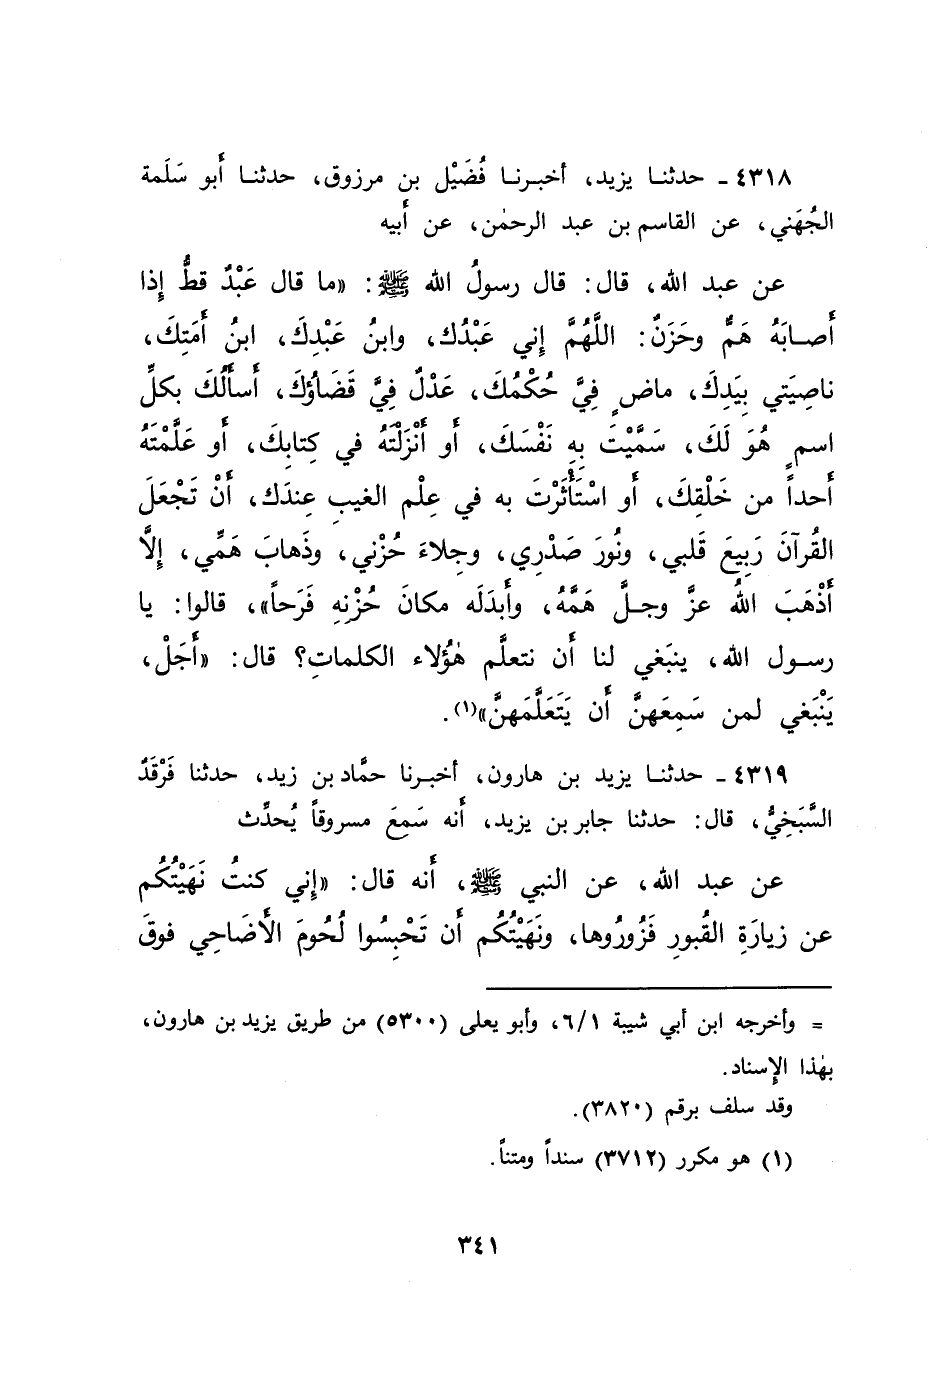 ٤٣١٨ ـ حدثنا يزيد، أخبرنا فُضَيْل بن مرزوق، حدثنا أَبو سَلَمة
الجُهَني، عن القاسم بن عبد الرحمٰن، عن أَبيه
عن عبد الله، قال: قال رسولُ الله ﷺ: «ما قال عَبْدٌ قطُّ إِذا
أَصابَهُ هَمٌّ وحَزَنٌ: اللَّهُمَّ إِني عَبْدُك، وابنُ عَبْدِكَ، ابنُ أَمَتِكَ،
ناصِيَتي بِيَدِكَ، ماضٍ فِيَّ حُكْمُكَ، عَدْلٌ فِيَّ قَضَاؤُكَ، أَسأَلُكَ بكلِّ
اسمٍ هُوَ لَكَ، سَمَّيْتَ بِهِ نَفْسَكَ، أَو أَنْزَلْتَهُ في كِتابِكَ، أَو عَلَّمْتَهُ
أَحداً من خَلْقِكَ، أَو اسْتَأْثَرْتَ به في عِلْم الغيبِ عِندَك، أَنْ تَجْعَلَ
القُرآنَ رَبِيعَ قَلبي، ونُورَ صَدْرِي، وجِلاءَ حُزْني، وذَهابَ هَمِّي، إِلَّا
أَذْهَبَ اللهُ عزَّ وجلَّ هَمَّهُ، وأَبدَلَه مكانَ حُزْنِهِ فَرَحاً»، قالوا: يا
رسول الله، ينبَغي لنا أَن نتعلَّم هٰؤُلاء الكلماتِ؟ قال: «أَجَلْ،
يَنْبَغي لمن سَمِعَهنَّ أَن يَتَعَلَّمَهنَّ»(١).
٤٣١٩ ـ حدثنا يزيد بن هارون، أخبرنا حمَّاد بن زيد، حدثنا فَرْقَدٌ
السَّبَخِيُّ، قال: حدثنا جابر بن يزيد، أَنه سَمِعَ مسروقاً يُحدِّث
عن عبد الله، عن النبي ﷺ، أَنه قال: «إِني كنتُ نَهَيْتُكُم
عن زيارَةِ القُبورِ فَزُورُوها، ونَهَيْتُكُم أَن تَحْبِسُوا لُحُومَ الأَضَاحِي فوقَ
= وأخرجه ابن أبي شيبة ٦/١، وأبو يعلى (٥٣٠٠) من طريق يزيد بن هارون،
بهٰذا الإِسناد.
وقد سلف برقم (٣٨٢٠).
(١) هو مكرر (٣٧١٢) سنداً ومتناً.
٣٤١